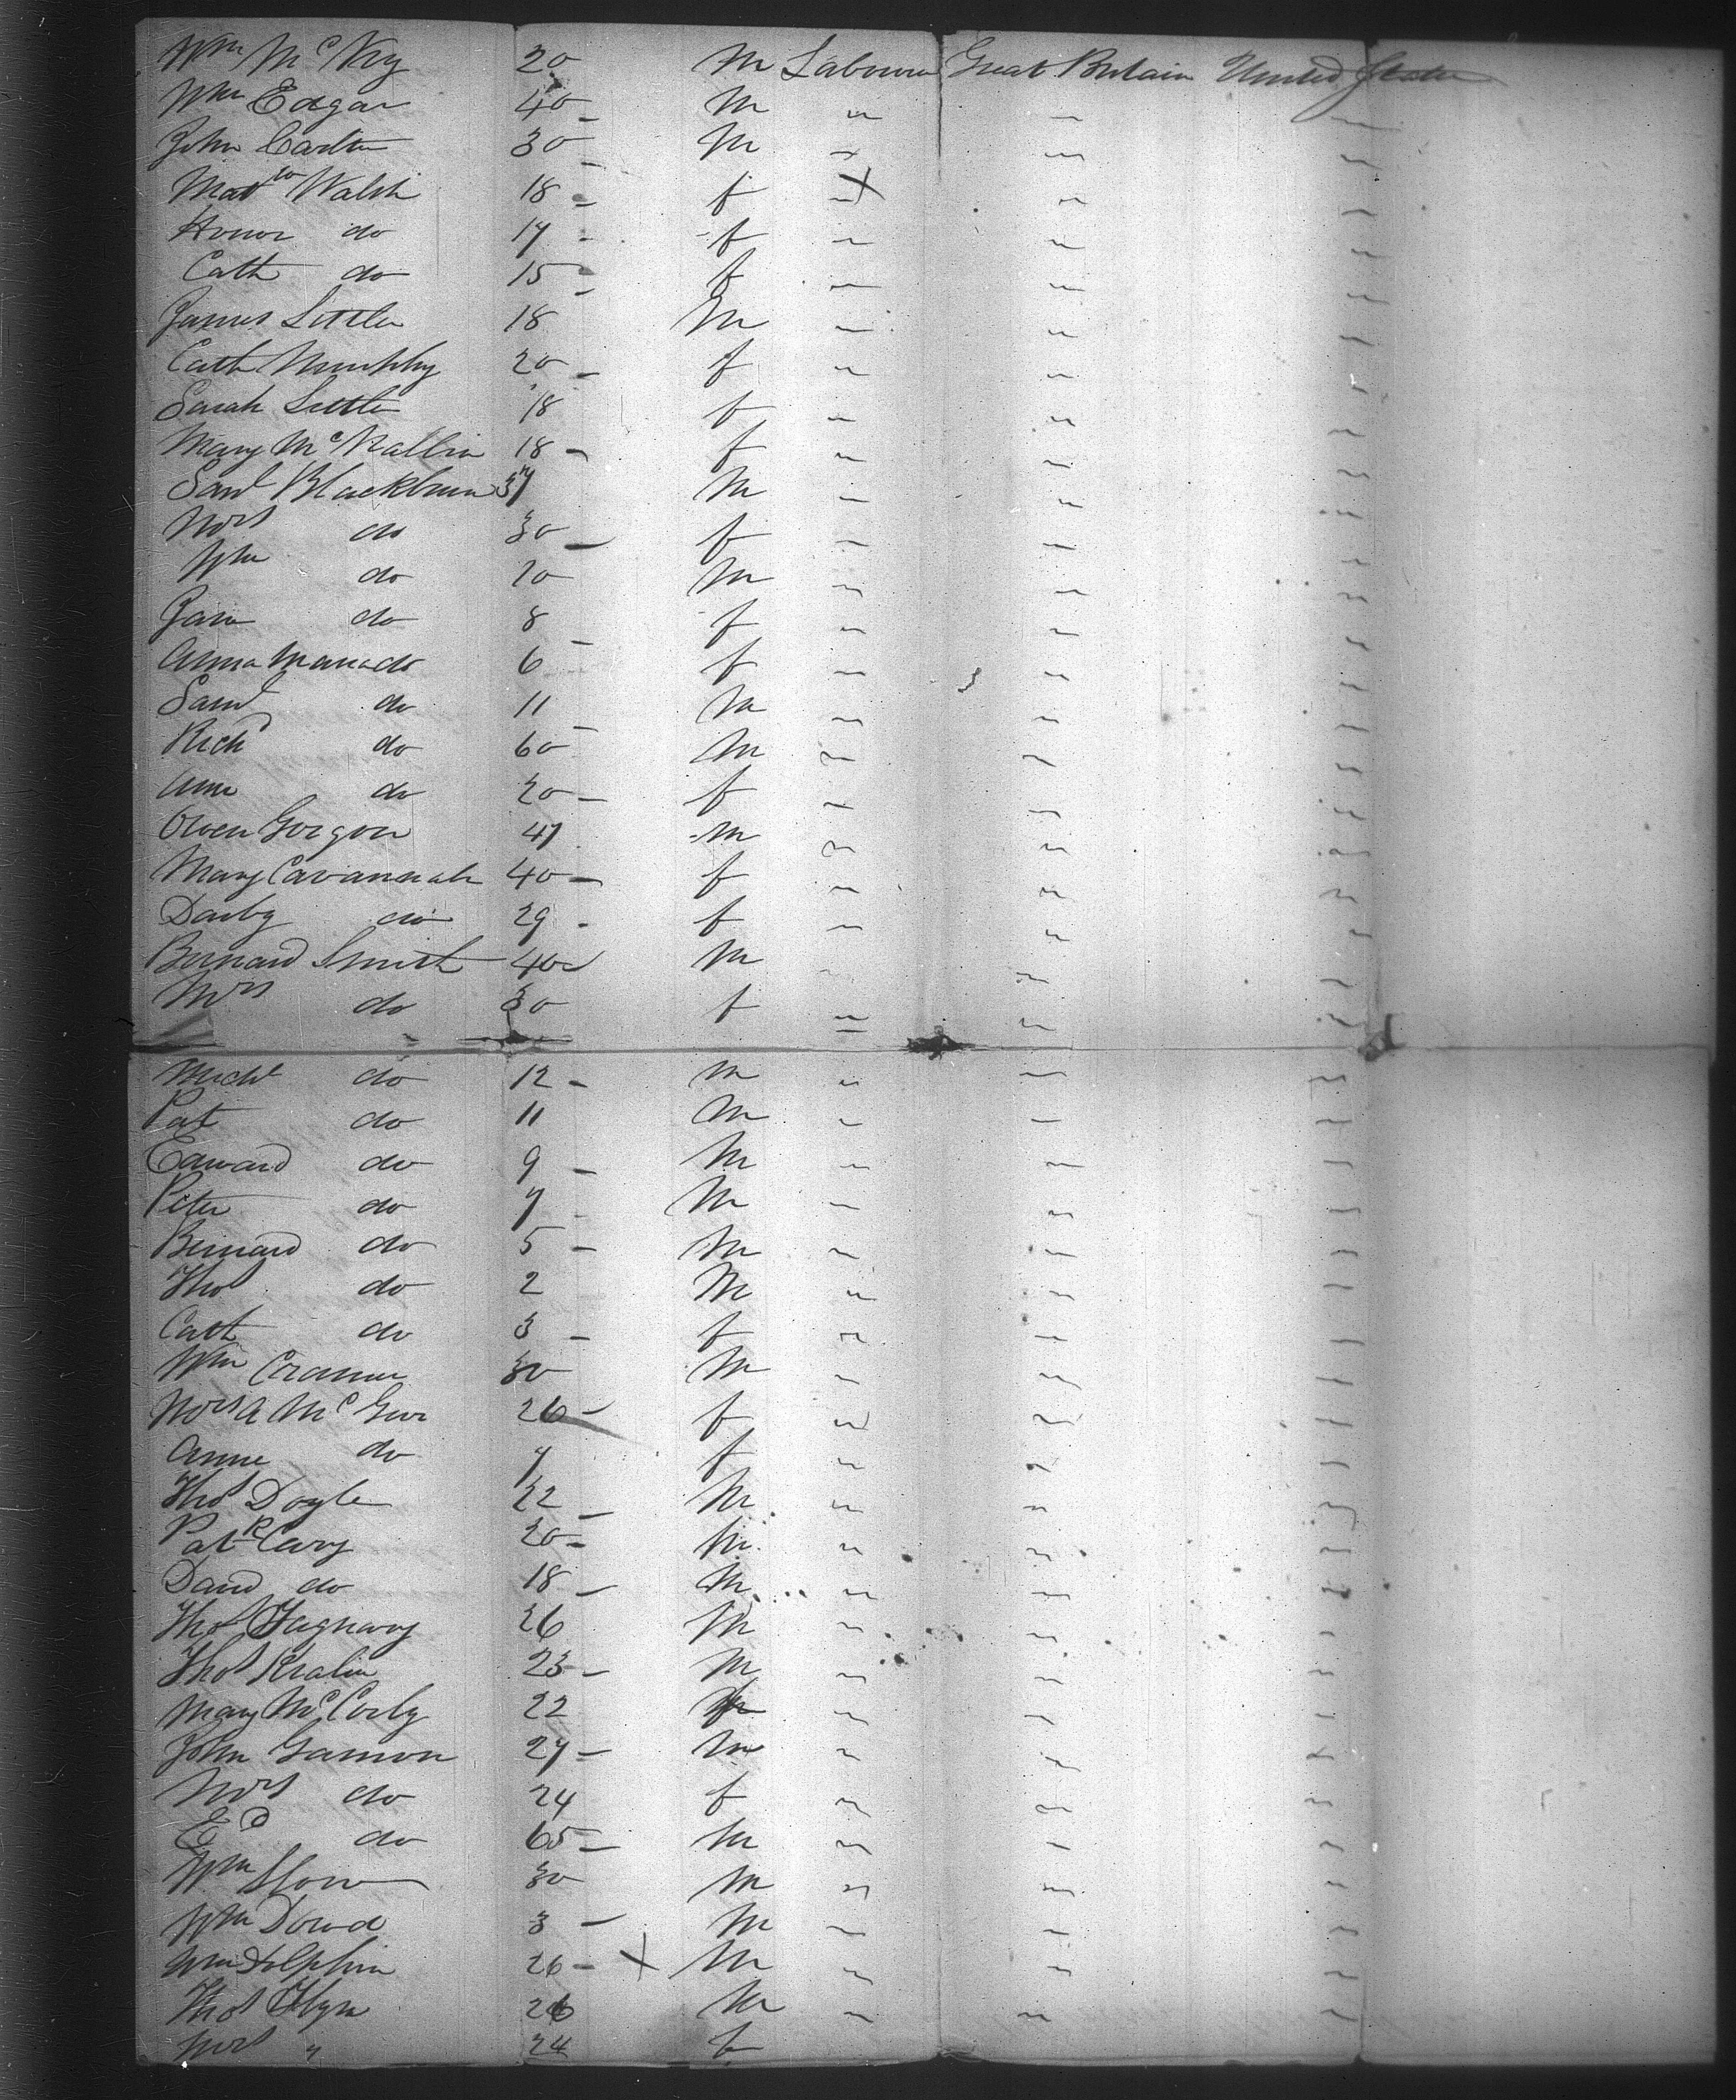 Wm McVey 20 M Labourer Great Britain United States
Wm Edgar 40 M " " "
John Carlton 30 M " " "
Mattw Walsh 18 f " " "
Honor do 17 f " " "
Cath do 15 f " " "
James Little 18 M " " "
Cath Murphy 20 f " " "
Sarah Little 18 f " " "
Mary Mc 18 f " " "
Saml Blackburn 37 M " " "
Mrs do 30 f " " "
Wm do 10 M " " "
Jane do 8 f " " "
Anna Maria do 6 f " " "
Saml do 11 M " " "
Richd do 60 M " " "
Ann do 20 f " " "
Owen Gorgon 47 M " " "
Mary Cavannah 40 f " " "
Darby do 29 f " " "
Bernard Smith 40 M " " "
Mrs do 30 f " " "
Michl do 12 M " " "
Pat do 11 M " " "
Edward do 9 M " " "
Peter do 7 M " " "
Bernard do 5 M " " "
Thos do 2 M " " "
Cath do 3 f " " "
Wm Cramer 30 M " " "
Mrs A McGuir 26 f " " "
Anne do 7 f " " "
Thos Doyle 22 M " " "
Patk Cary 20 M " " "
David do 18 M " " "
Thos 26 M " " "
Thos 23 M " " "
Mary McCorly 22 f " " "
John Gamon 27 M " " "
Mrs do 24 f " " "
Ed do 65 M " " "
Wm 30 M " " "
Wm Dowd 3 M " " "
Wm Dolphin 26 X M " " "
Thos Flyn 26 M " " "
Mrs " 24 f